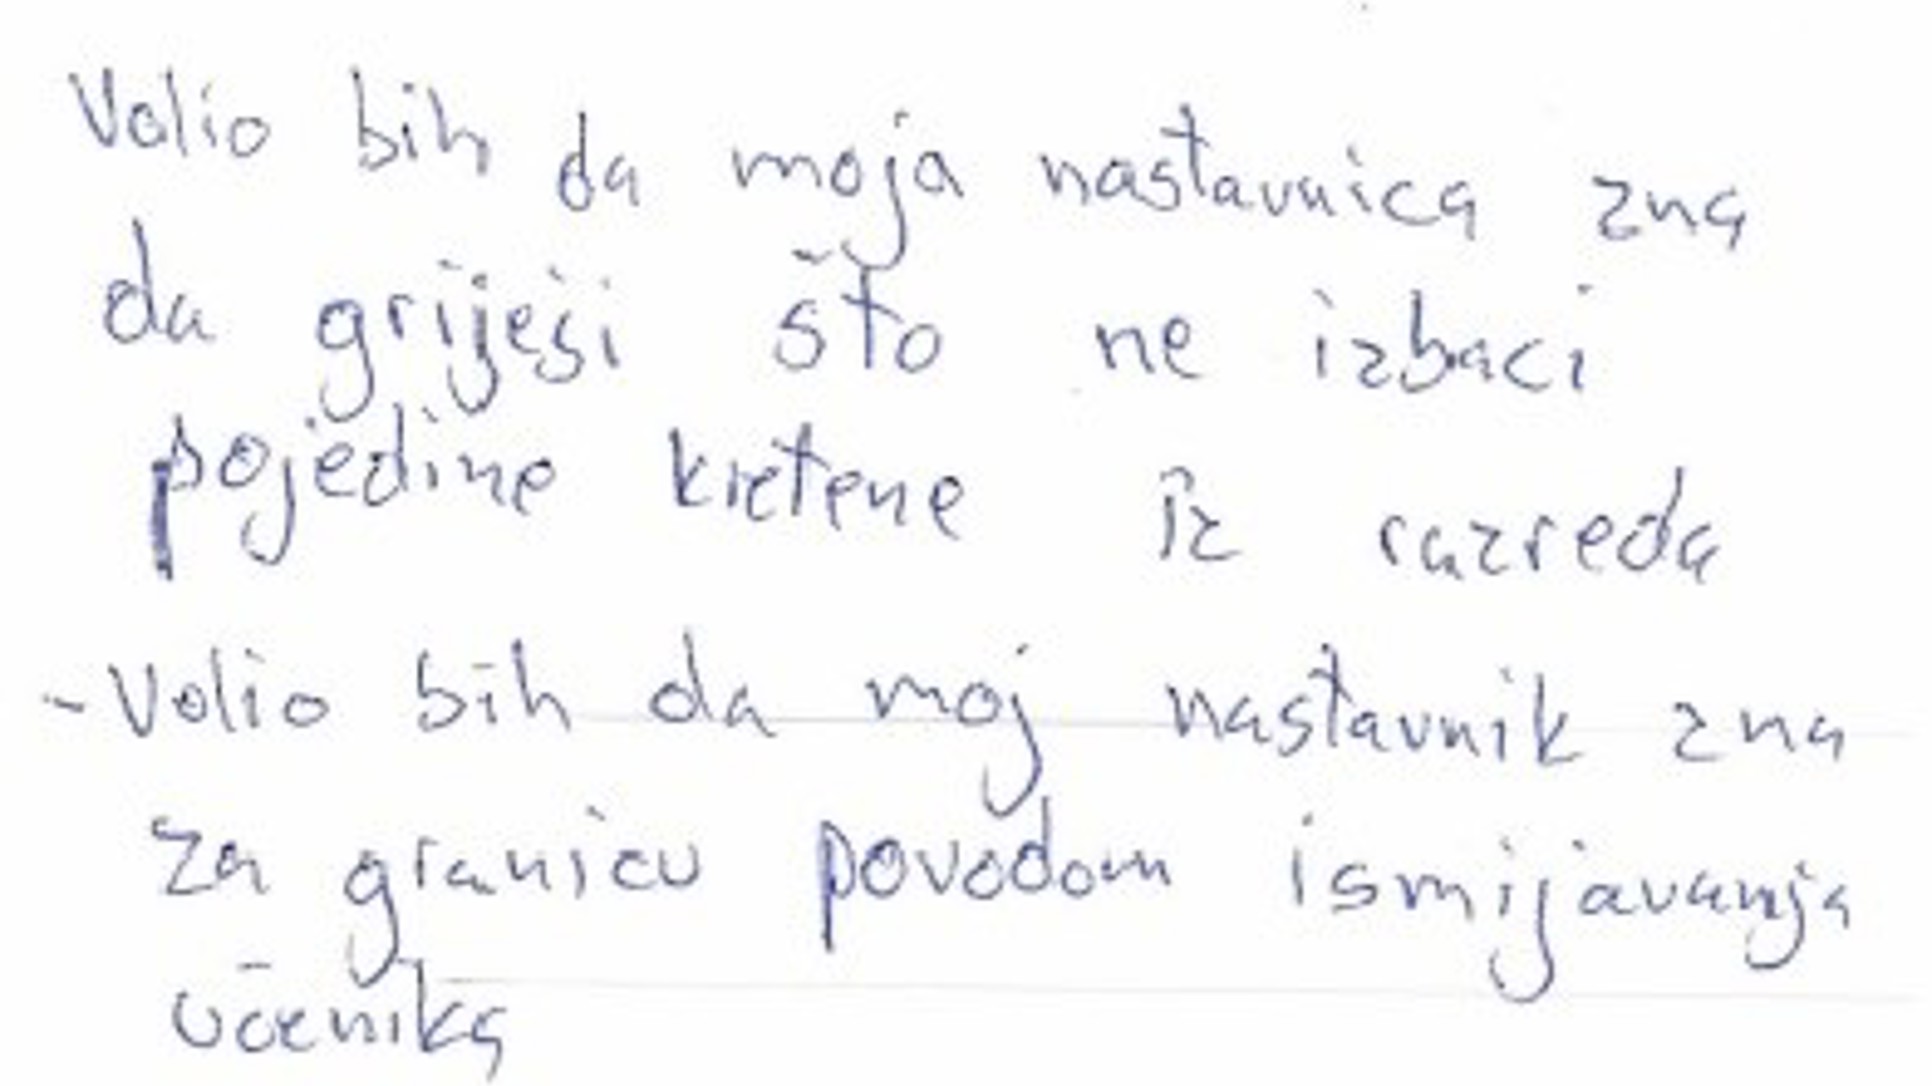 Volio bih da moja nastavnica zna
da griješi što ne izbaci
pojedine kretene iz razreda
- Volio bih da moj nastavnik zna
za granicu povodom ismijavanja
učenika